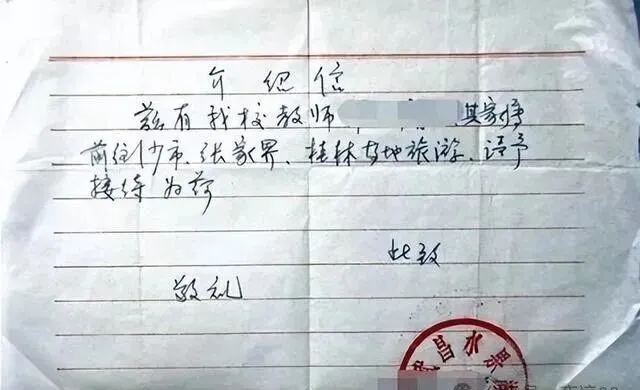 介绍信
兹有我校教师 其家
前往沙市、张家界、桂林等地旅游、请予
接待为荷
此致
敬礼
昌水果